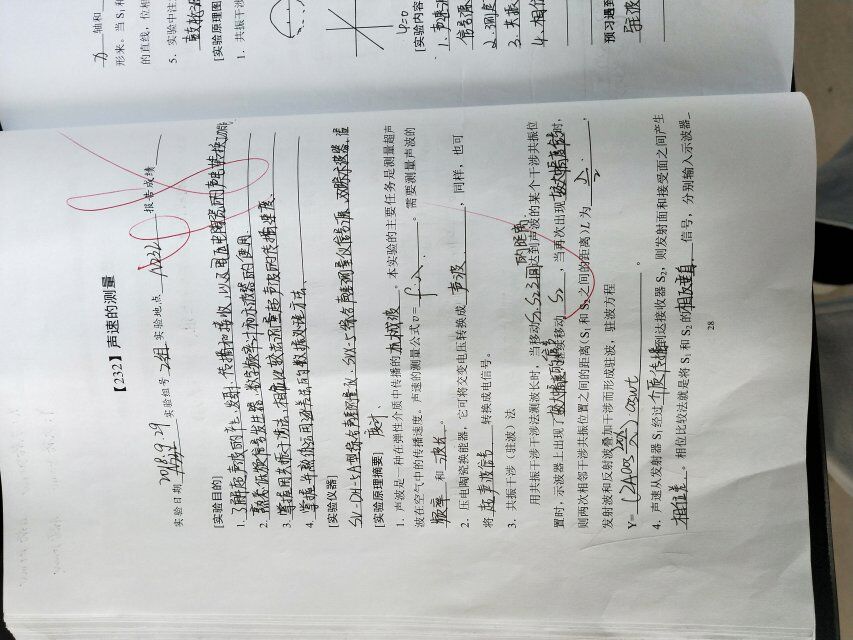 【232】声速的测量
实验日期 2018.9.29 实验组号 2组 实验地点 A232 报告成绩
[实验目的]
1. 了解超声波的产生、发射、传播和接收,以及压电陶瓷的声电转换功能
2. 熟悉低频信号发生器、数字频率计和示波器的使用
3. 掌握用共振干涉法、相位比较法测量超声波的传播速度.
4. 掌握年熟你运用逐差法的数据处理方法.
[实验仪器]
SV-DH-5A型声速测量仪、SVX-5综合声速测量仪信号源、双踪示波器、温
[实验原理摘要] 度计.
1. 声波是一种在弹性介质中传播的机械波。本实验的主要任务是测量超声
波在空气中的传播速度。声速的测量公式v= fλ 。需要测量声波的
频率 和 波长 。
2. 压电陶瓷换能器,它可将交变电压转换成 声波 ,同样,也可
将 超声波信号 转换成电信号。
3. 共振干涉(驻波)法
用共振干涉法测波长时,当移动S₁S₂之间的距离达到声波的某个干涉共振位
置时,示波器上出现了最大幅度的信号,继续移动 S₂ ,当再次出现最大幅度信号时,
则两次相邻干涉共振位置之间的距离(S₁和S₂之间的距离)L为 λ/2 ,
发射波和反射波叠加干涉而形成驻波,驻波方程
Y= (2Acos 2πx/λ) cosωt
4. 声速从发射器 S₁ 经过 介质传播到达接收器 S₂,则发射面和接受面之间产生
相位差 。相位比较法就是将 S₁ 和 S₂ 的相互垂直 信号,分别输入示波器
28
轴和
形来。当 S₁
的直线,位相
5. 实验中注
[实验原理图
1. 共振干涉
φ=0
[实验内容
信号源
2. 测
3. 共振
4. 相位
预习遇到
驻波